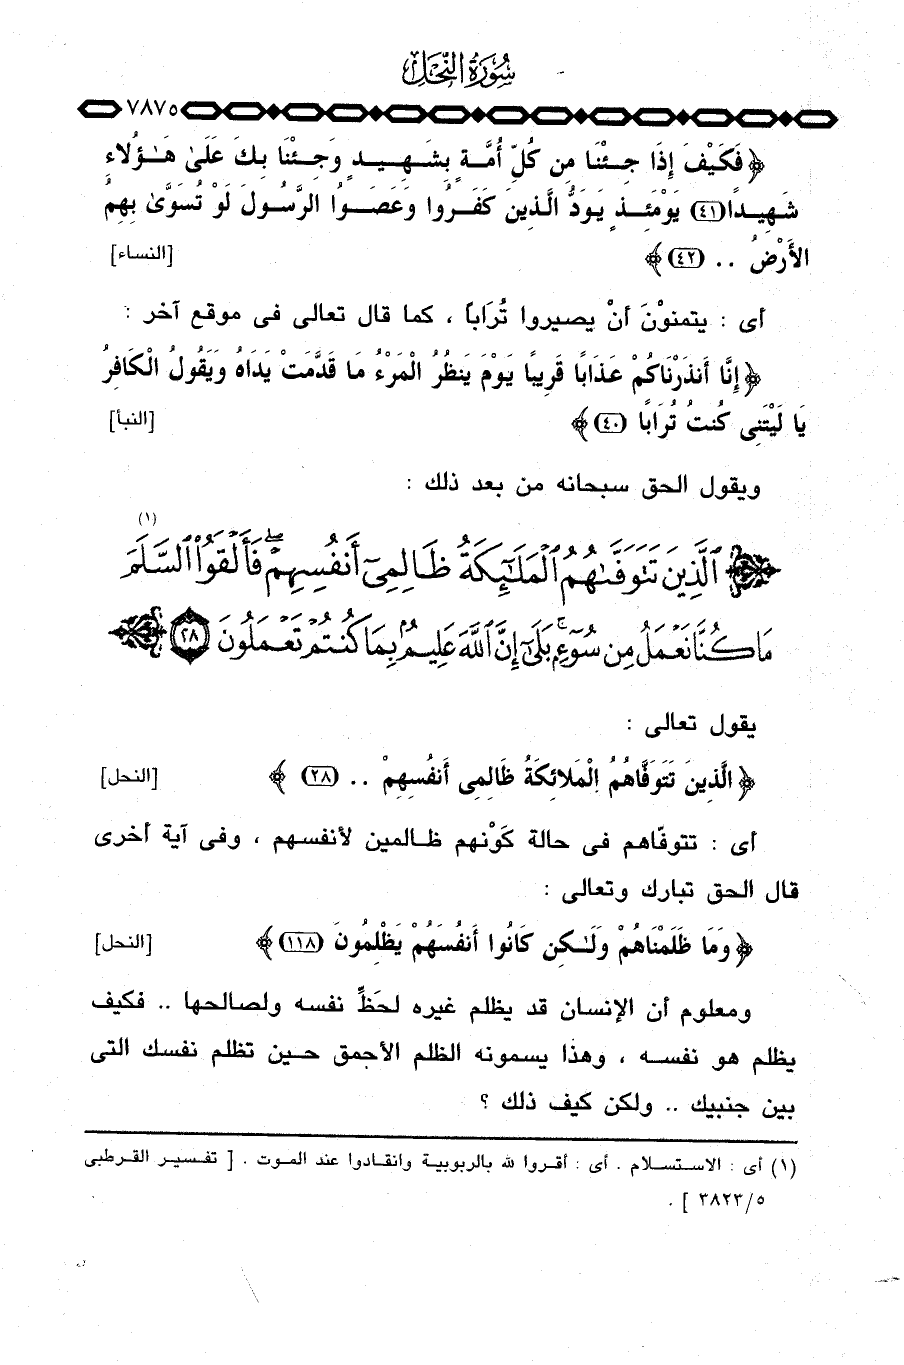 سُورَةُ النَّحْلِ
٧٨٧٥
﴿ فَكَيْفَ إِذَا جِئْنَا مِن كُلِّ أُمَّةٍ بِشَهِيدٍ وَجِئْنَا بِكَ عَلَىٰ هَٰؤُلَاءِ
شَهِيدًا (٤١) يَوْمَئِذٍ يَوَدُّ الَّذِينَ كَفَرُوا وَعَصَوُا الرَّسُولَ لَوْ تُسَوَّىٰ بِهِمُ
الأَرْضُ .. (٤٢) ﴾ [النساء]
أى : يتمنوْنَ أنْ يصيروا تُرَاباً ، كما قال تعالى فى موقع آخر :
﴿ إِنَّا أَنذَرْنَاكُمْ عَذَابًا قَرِيبًا يَوْمَ يَنظُرُ الْمَرْءُ مَا قَدَّمَتْ يَدَاهُ وَيَقُولُ الْكَافِرُ
يَا لَيْتَنِى كُنتُ تُرَابًا (٤٠) ﴾ [النبأ]
ويقول الحق سبحانه من بعد ذلك :
﴿ ٱلَّذِينَ تَتَوَفَّىٰهُمُ ٱلْمَلَٰٓئِكَةُ ظَالِمِىٓ أَنفُسِهِمْ ۖ فَأَلْقَوُا۟ ٱلسَّلَمَ (١)
مَا كُنَّا نَعْمَلُ مِن سُوٓءٍۭ ۚ بَلَىٰٓ إِنَّ ٱللَّهَ عَلِيمٌۢ بِمَا كُنتُمْ تَعْمَلُونَ ٢٨ ﴾
يقول تعالى :
﴿ الَّذِينَ تَتَوَفَّاهُمُ الْمَلَائِكَةُ ظَالِمِى أَنفُسِهِمْ .. (٢٨) ﴾ [النحل]
أى : تتوفّاهم فى حالة كَوْنهم ظالمين لأنفسهم ، وفى آية أخرى
قال الحق تبارك وتعالى :
﴿ وَمَا ظَلَمْنَاهُمْ وَلَٰكِن كَانُوا أَنفُسَهُمْ يَظْلِمُونَ (١١٨) ﴾ [النحل]
ومعلوم أن الإنسان قد يظلم غيره لحَظِّ نفسه ولصالحها .. فكيف
يظلم هو نفسه ، وهذا يسمونه الظلم الأحمق حين تظلم نفسك التى
بين جنبيك .. ولكن كيف ذلك ؟
(١) أى : الاستسلام . أى : أقروا لله بالربوبية وانقادوا عند الموت . [ تفسير القرطبى
٣٨٢٣/٥ ] .